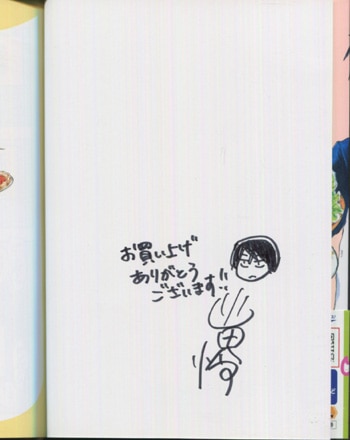 お買い上げ
ありがとう
ございます!!